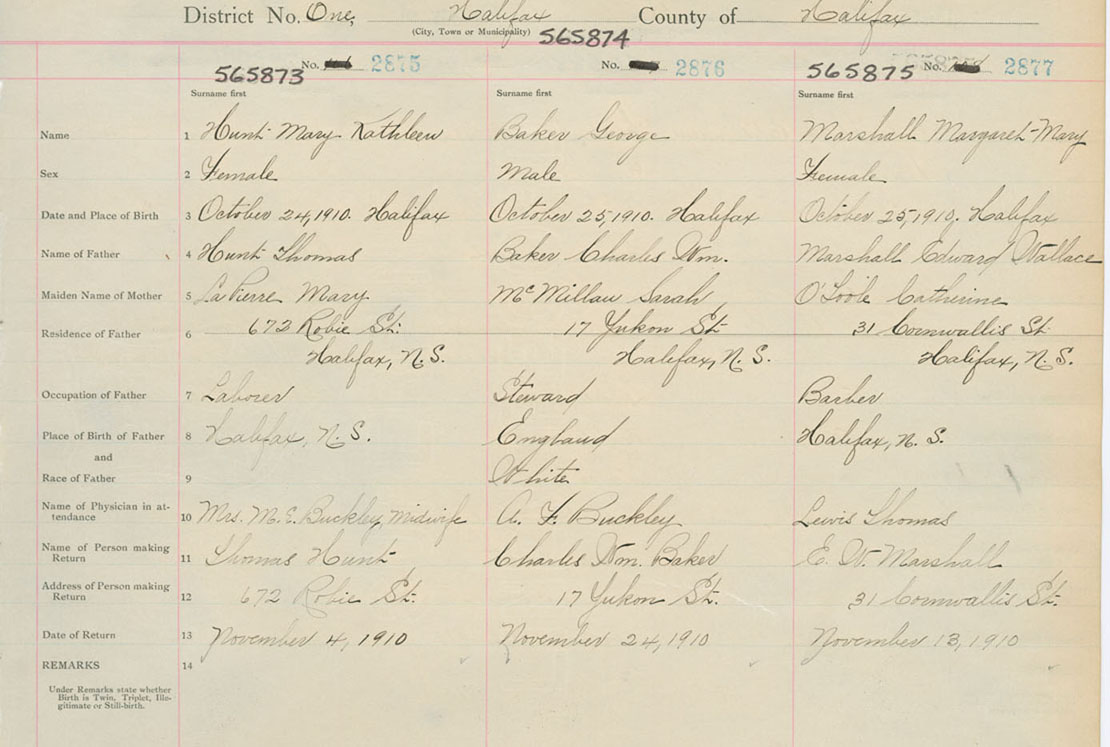 District No. One, Halifax County of Halifax
(City, Town or Municipality)
565873 No. 2875 565874 No. 2876 565875 No. 2877
Surname first Surname first Surname first
Name 1 Hunt Mary Kathleen Baker George Marshall Margaret-Mary
Sex 2 Female Male Female
Date and Place of Birth 3 October 24, 1910. Halifax October 25, 1910. Halifax October 25, 1910. Halifax
Name of Father 4 Hunt Thomas Baker Charles Wm. Marshall Edward Wallace
Maiden Name of Mother 5 LaPierre Mary McMillan Sarah O'Toole Catherine
Residence of Father 6 672 Robie St. 17 Yukon St. 31 Cornwallis St.
Halifax, N.S. Halifax, N.S. Halifax, N.S.
Occupation of Father 7 Laborer Steward Barber
Place of Birth of Father 8 Halifax, N.S. England Halifax, N.S.
and
Race of Father 9 White
Name of Physician in at-
tendance 10 Mrs. M. E. Buckley, Midwife A. F. Buckley Lewis Thomas
Name of Person making
Return 11 Thomas Hunt Charles Wm. Baker E. W. Marshall
Address of Person making
Return 12 672 Robie St. 17 Yukon St. 31 Cornwallis St.
Date of Return 13 November 4, 1910 November 24, 1910 November 13, 1910
REMARKS 14
Under Remarks state whether
Birth is Twin, Triplet, Ille-
gitimate or Still-birth.